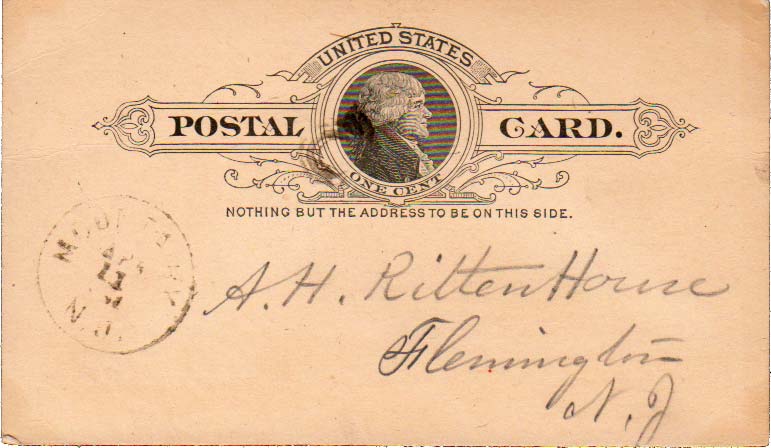 UNITED STATES
POSTAL CARD.
ONE CENT
NOTHING BUT THE ADDRESS TO BE ON THIS SIDE.
A. H. RittenHouse
Flemington
N. J